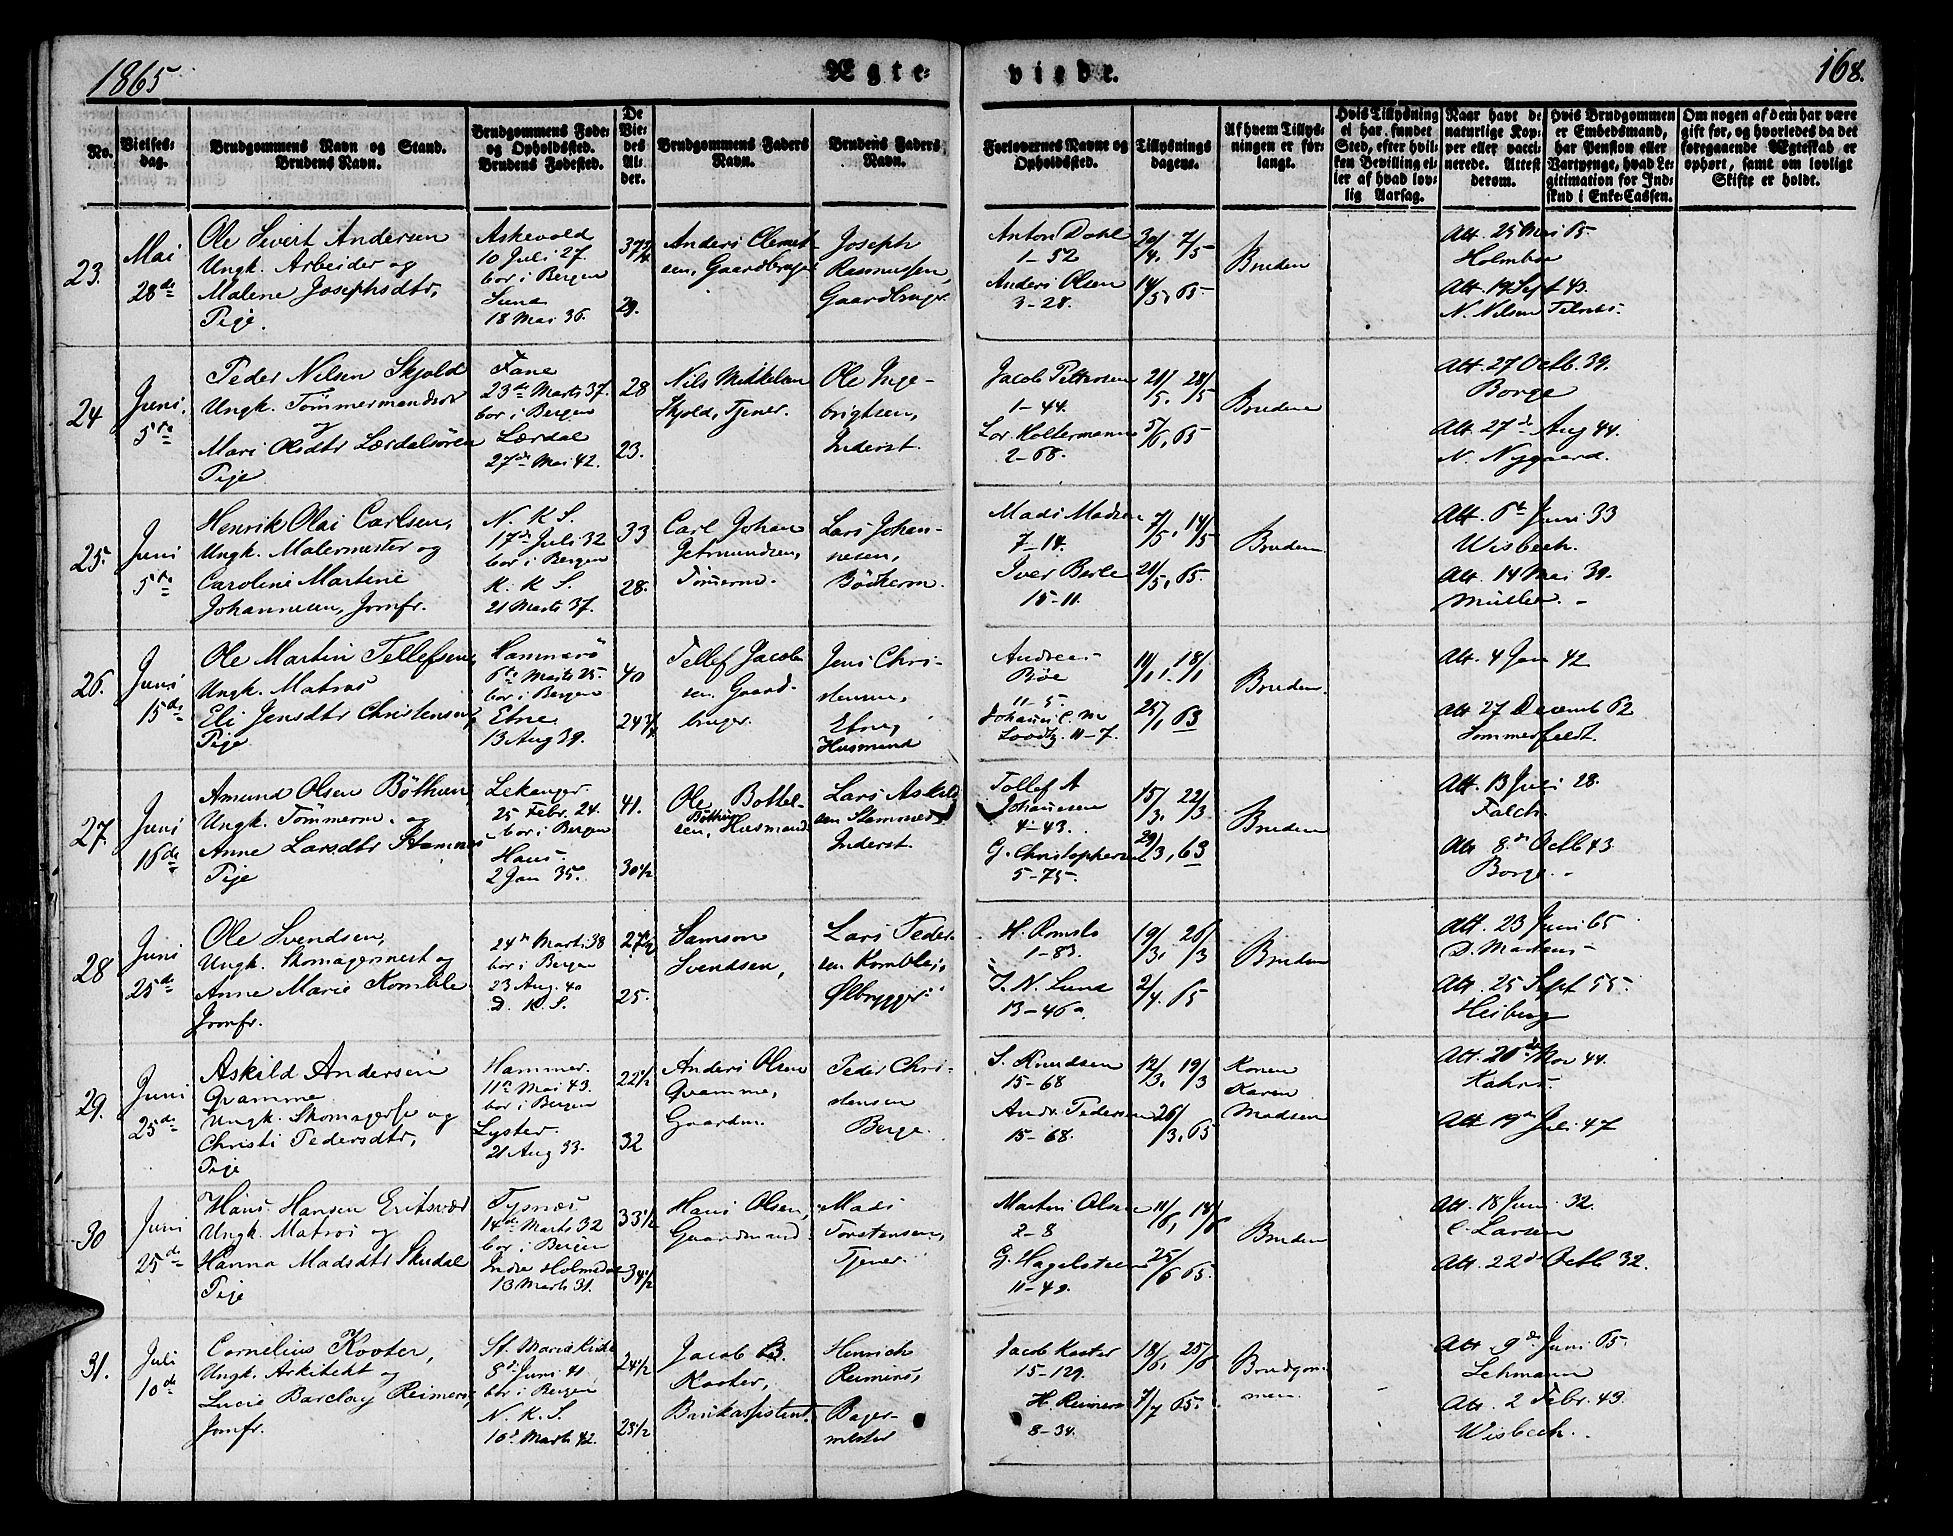 1865
Ægte=
viede.
168.
No.
Vielses=
dag.
Brudgommens Navn og Stand.
Brudens Navn.
Brudgommens Føde=
og Opholdssted.
Brudens Fødested.
De
Vie=
des
Al=
der.
Brudgommens Faders
Navn.
Brudens Faders
Navn.
Forlovernes Navne og
Opholdssted.
Tillysnings
dagene.
Af hvem Tillys=
ningen er for=
langt.
Hvis Tillysning
ei har fundet
Sted, efter hvil=
ken Bevilling el=
ler af hvad lov=
lig Aarsag.
Naar havt de
naturlige Kop=
per eller vacci=
nerede. Attest
derom.
Hvis Brudgommen
er Embedsmand,
har Pension eller
Vartpenge, hvad Le=
gitimation for Ind=
skud i Enke=Cassen.
Om nogen af dem har være
gift før, og hvorledes da det
foregaaende Ægteskab er
ophørt, samt om lovligt
Skifte er holdt.
23.
Mai
28de
Ole Sivert Andersen
Ungk. Arbeider og
Malene Josephsdtr,
Pige.
Askevold
10 Juli 27
bor i Bergen
Sund
18 Mai 36.
29.
Anders Clemet-
sen, Gaardbruger
Joseph
Rasmussen,
Gaardbruger
Anton Dahl
1-52
Anders Olsen
3-28.
30/4. 7/5
14/5, 65.
Bruden
Att. 25 Mai 65.
Holmboe
Att. 19 Sept 43.
N. Nilsen
24
Juni
5te
Peder Nilsen Skjold
Ungk. Tømmermandssv
og
Mari Olsdtr Lærdalsøren
Pige
Fane
23de Marts 37.
bor i Bergen
Lærdal
27de Mai 42.
28
23.
Nils Mikkelsen
Skjold, Tjener.
Ole Inge-
brigtsen,
Inderst.
Jacob Pettersen
1-44.
Lor. Koltermann
2-68.
21/5. 28/5
5/6, 65
Bruden
Att. 27 Octb. 39.
Borge
Att. 27de Aug 44.
N. Nygaard.
25.
Juni
5te
Henrik Olai Carlsen,
Ungk. Malermester og
Caroline Martine
Johannesen, Jomfr.
N. K. S.
17de Juli 32
bor i Bergen
K. K. S.
21 Marts 37.
33
28.
Carl Johan
Tømerm.
Lars Johan-
nesen,
Bødkerm.
Mads Madsen
7-14.
Iver Berle
15-11.
7/5, 14/5
21/5, 65.
Bruden
Att. 6te Juni 33
Wisbech.
Att. 14 Mai 39.
Müller.
26.
Juni
15de
Ole Martin Tellefsen
Ungk. Matros
Eli Jensdtr Christensen,
Pige
Hammerø
6te Marts 25.
bor i Bergen
Etne
13 Aug 39.
40
Tellef Jacob-
sen, Gaard-
bruger.
Jens Chri-
stensen,
Etne,
Husmand
Andreas
Bøe
11-5.
11-7.
11/1. 18/1
25/1 63
Bruden
Att. 4 Jan 42
Att. 27 Decemb 62
Sommerfeldt.
27.
Juni
16de
Amund Olsen Bøthun,
Ungk. Tømmerm. og
Anne Larsdtr Stamnes
Pige
Lekanger.
25 Febr. 24.
bor i Bergen
Haus.
2 Jan 35.
41.
30 1/2
Ole Bottel-
Bøthun
sen, Husmand
Lars Askild-
sen Stamnes
Inderst.
Tollef A
Johannesen
4-43.
G. Christophersen
5-75.
15/3. 22/3
29/3, 63
Bruden
Att. 13 Juli 28.
Falch.
Att. 8de Octb 43
Borge.
28
Juni
25de
Ole Svendsen,
Ungk. Skomagermest og
Anne Marie Komble
Jomfr.
24de Marts 38
bor i Bergen
23 Aug. 40
D. K. S.
27 1/2
25.
Samson
Svendsen,
Lars Peder-
sen Komble,
Ølbrygger.
H. Romslo
1-83.
J. N. Lund
13-46a
19/3, 26/3
2/4. 65
Bruden
Att. 23 Juni 65
D. Martens
Att. 25 Sept 55.
Heiberg
29.
Juni
25de
Askild Andersen
Qvamme
Ungk. Skomagersv og
Christi Pedersdtr,
Pige
Hammer.
11te Mai 43.
bor i Bergen
Lyster.
21 Aug 33.
22 1/2
32
Anders Olsen
Qvamme,
Gaardm.
Peder Chri-
stensen
Berge.
S. Knudsen
15-68
Andr. Pedersen
15-68.
12/3, 19/3
26/3, 65
Konen
Karen
Madsen
Att. 20de Nov 44.
Att 19de Juli 47
30
Juni
25de
Hans Hansen Eritsvær
Ungk. Matros og
Hanna Madsdtr Skudal
Pige
Tysnæs
14de Marts 32
bor i Bergen
Indre Holmedal
13 Marts 31.
33 1/2
34 1/2
Hans Olsen,
Gaardmand
Mads
Torstensen,
Tjener.
Martin Olsen
2-8
G. Hagelsteen
11-49.
11/6, 18/6
25/6 65.
Bruden
Att. 18 Juni 32.
C. Larsen
Att. 22de Octb 32.
31.
Juli
10de
Cornelius Koster,
Ungk. Arkitekt og
Lucie Barclay Reimers,
Jomfr.
St. Maria Kirke
8de Juni 41,
bor i Bergen
N. K. S.
16de Marts 42.
24 1/2
23 1/2
Jacob B.
Koster,
Bankassistent.
Henrich
Reimers,
Bager-
mester
Jacob Koster
15-129.
H. Reimers
8-34.
18/6. 25/6
7/7 65.
Brudgom-
men.
Att. 9de Juni 65.
Lehmann
Att. 2 Febr. 43.
Wisbech.